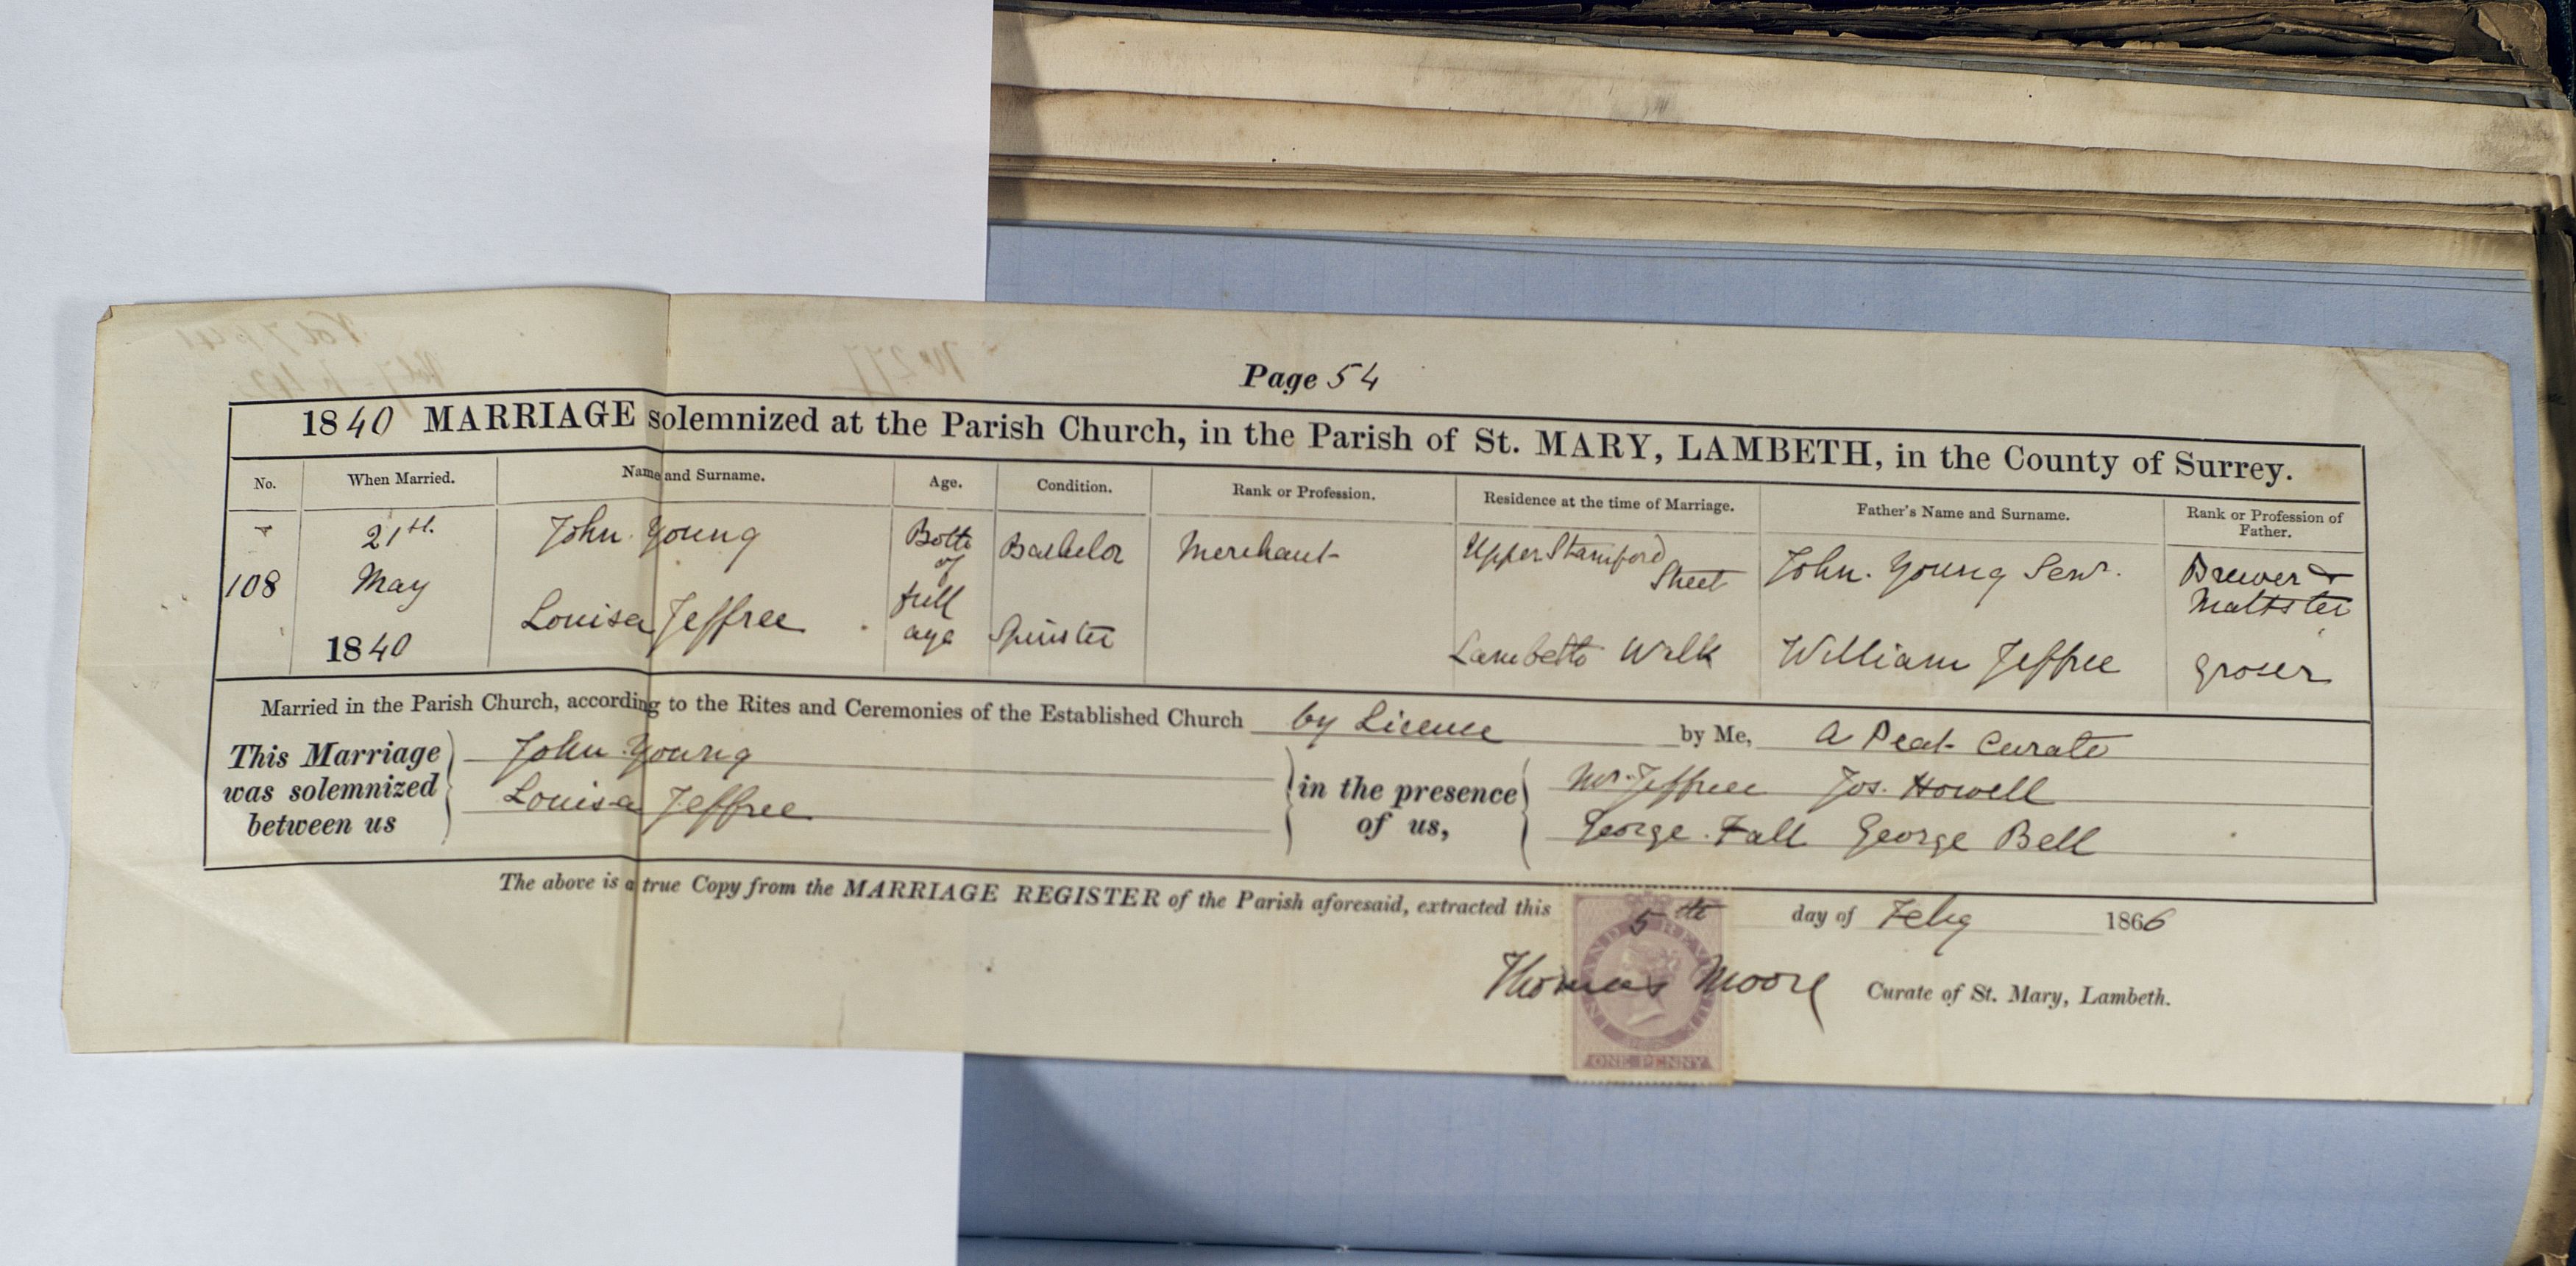 Page 54
1840 MARRIAGE solemnized at the Parish Church, in the Parish of St. MARY, LAMBETH, in the County of Surrey.
No. When Married. Name and Surname. Age. Condition. Rank or Profession. Residence at the time of Marriage. Father's Name and Surname. Rank or Profession of Father.
108 21st. May 1840
John Young Both of full age Bachelor Merchant Upper Stamford Street John. Young Senr. Brewer & Maltster
Louisa Jeffree Spinster Lambeth Walk William Jeffree Groser
Married in the Parish Church, according to the Rites and Ceremonies of the Established Church by Licence by Me, A Peat Curate
This Marriage was solemnized between us
John Young
Louisa Jeffree
in the presence of us,
Wm. Jeffree Jos. Howell
George Fall George Bell
The above is a true Copy from the MARRIAGE REGISTER of the Parish aforesaid, extracted this 5th day of Feby 1866
Thomas Moore Curate of St. Mary, Lambeth.
INLAND REVENUE
ONE PENNY